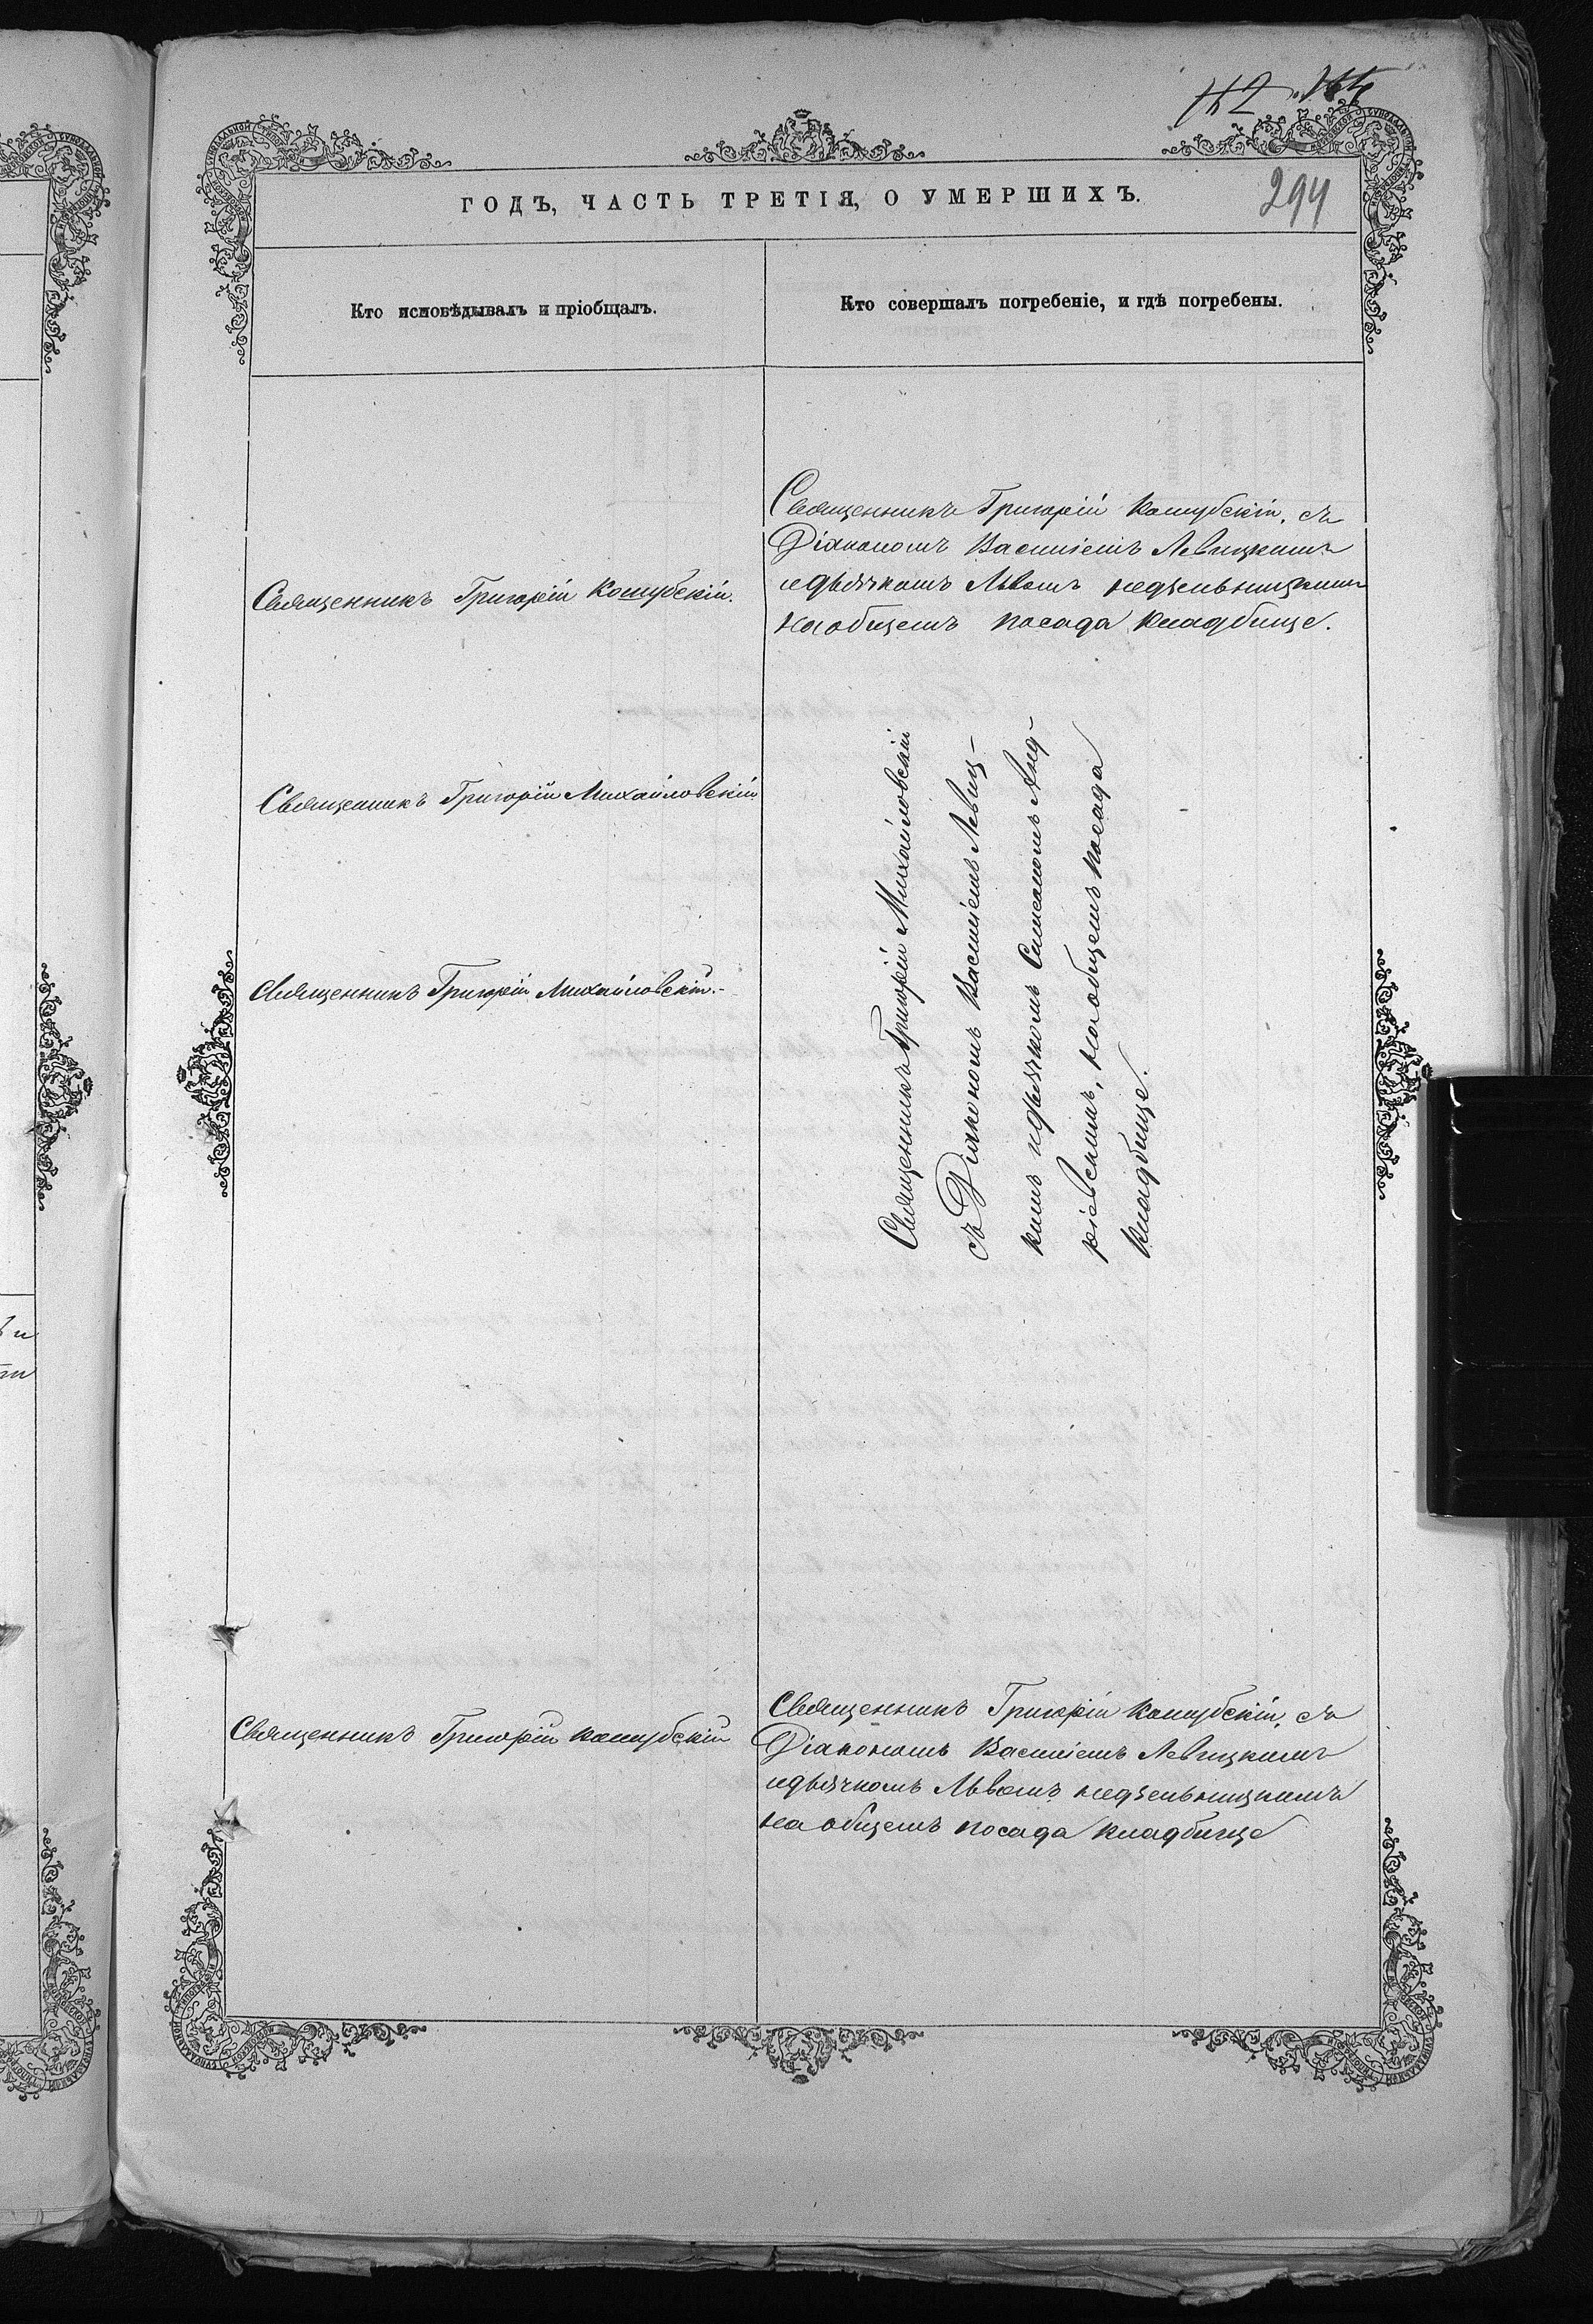 294
ГОДЪ, ЧАСТЬ ТРЕТІЯ, О УМЕРШИХЪ.
Кто исповѣдывалъ и пріобщалъ.
Кто совершалъ погребеніе, и гдѣ погребены.
Священникъ Григорій Кошубскій.
Священникъ Григорій Кошубскій, съ
Діакономъ Василіемъ Левицкимъ
и дьячкомъ Львомъ Недзельницкимъ
на общемъ посада кладбище.
Священникъ Григорій Михайловскій
Священникъ Григорій Михайловскій.-
Священникъ Григорій Михайловскій
съ Діакономъ Василіемъ Левиц-
кимъ и дьячкомъ Симеономъ Анд-
ріевскимъ, на общемъ посада
кладбище.
Священникъ Григорій Кошубскій
Священникъ Григорій Кошубскій, съ
Діакономъ Василіемъ Левицкимъ
и дьячкомъ Львомъ Недзельницкимъ
на общемъ посада кладбище